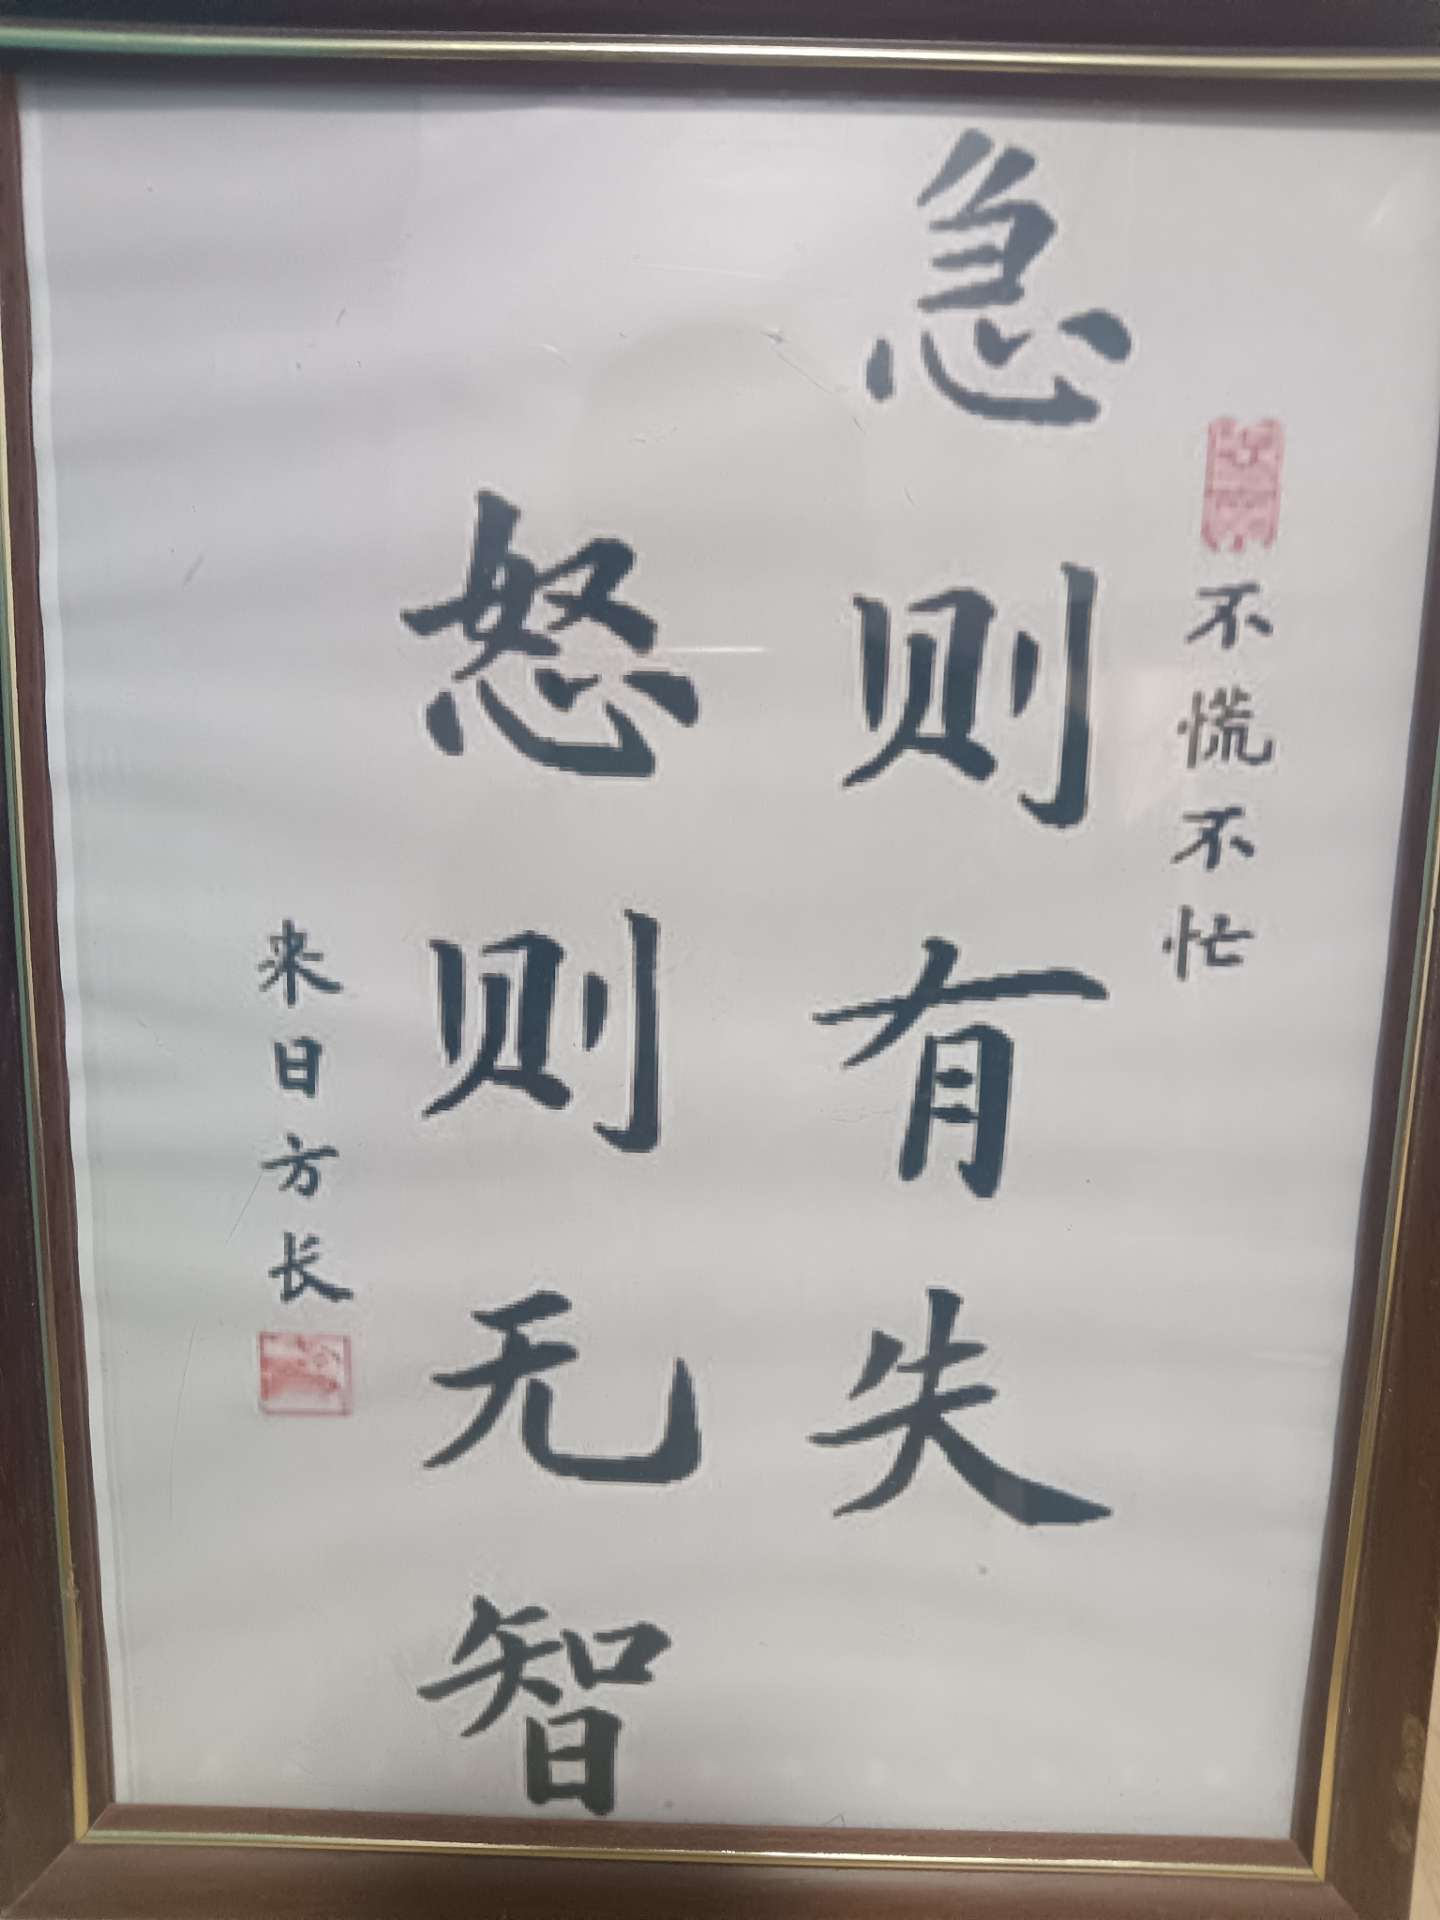 不慌不忙
急则有失
怒则无智
来日方长